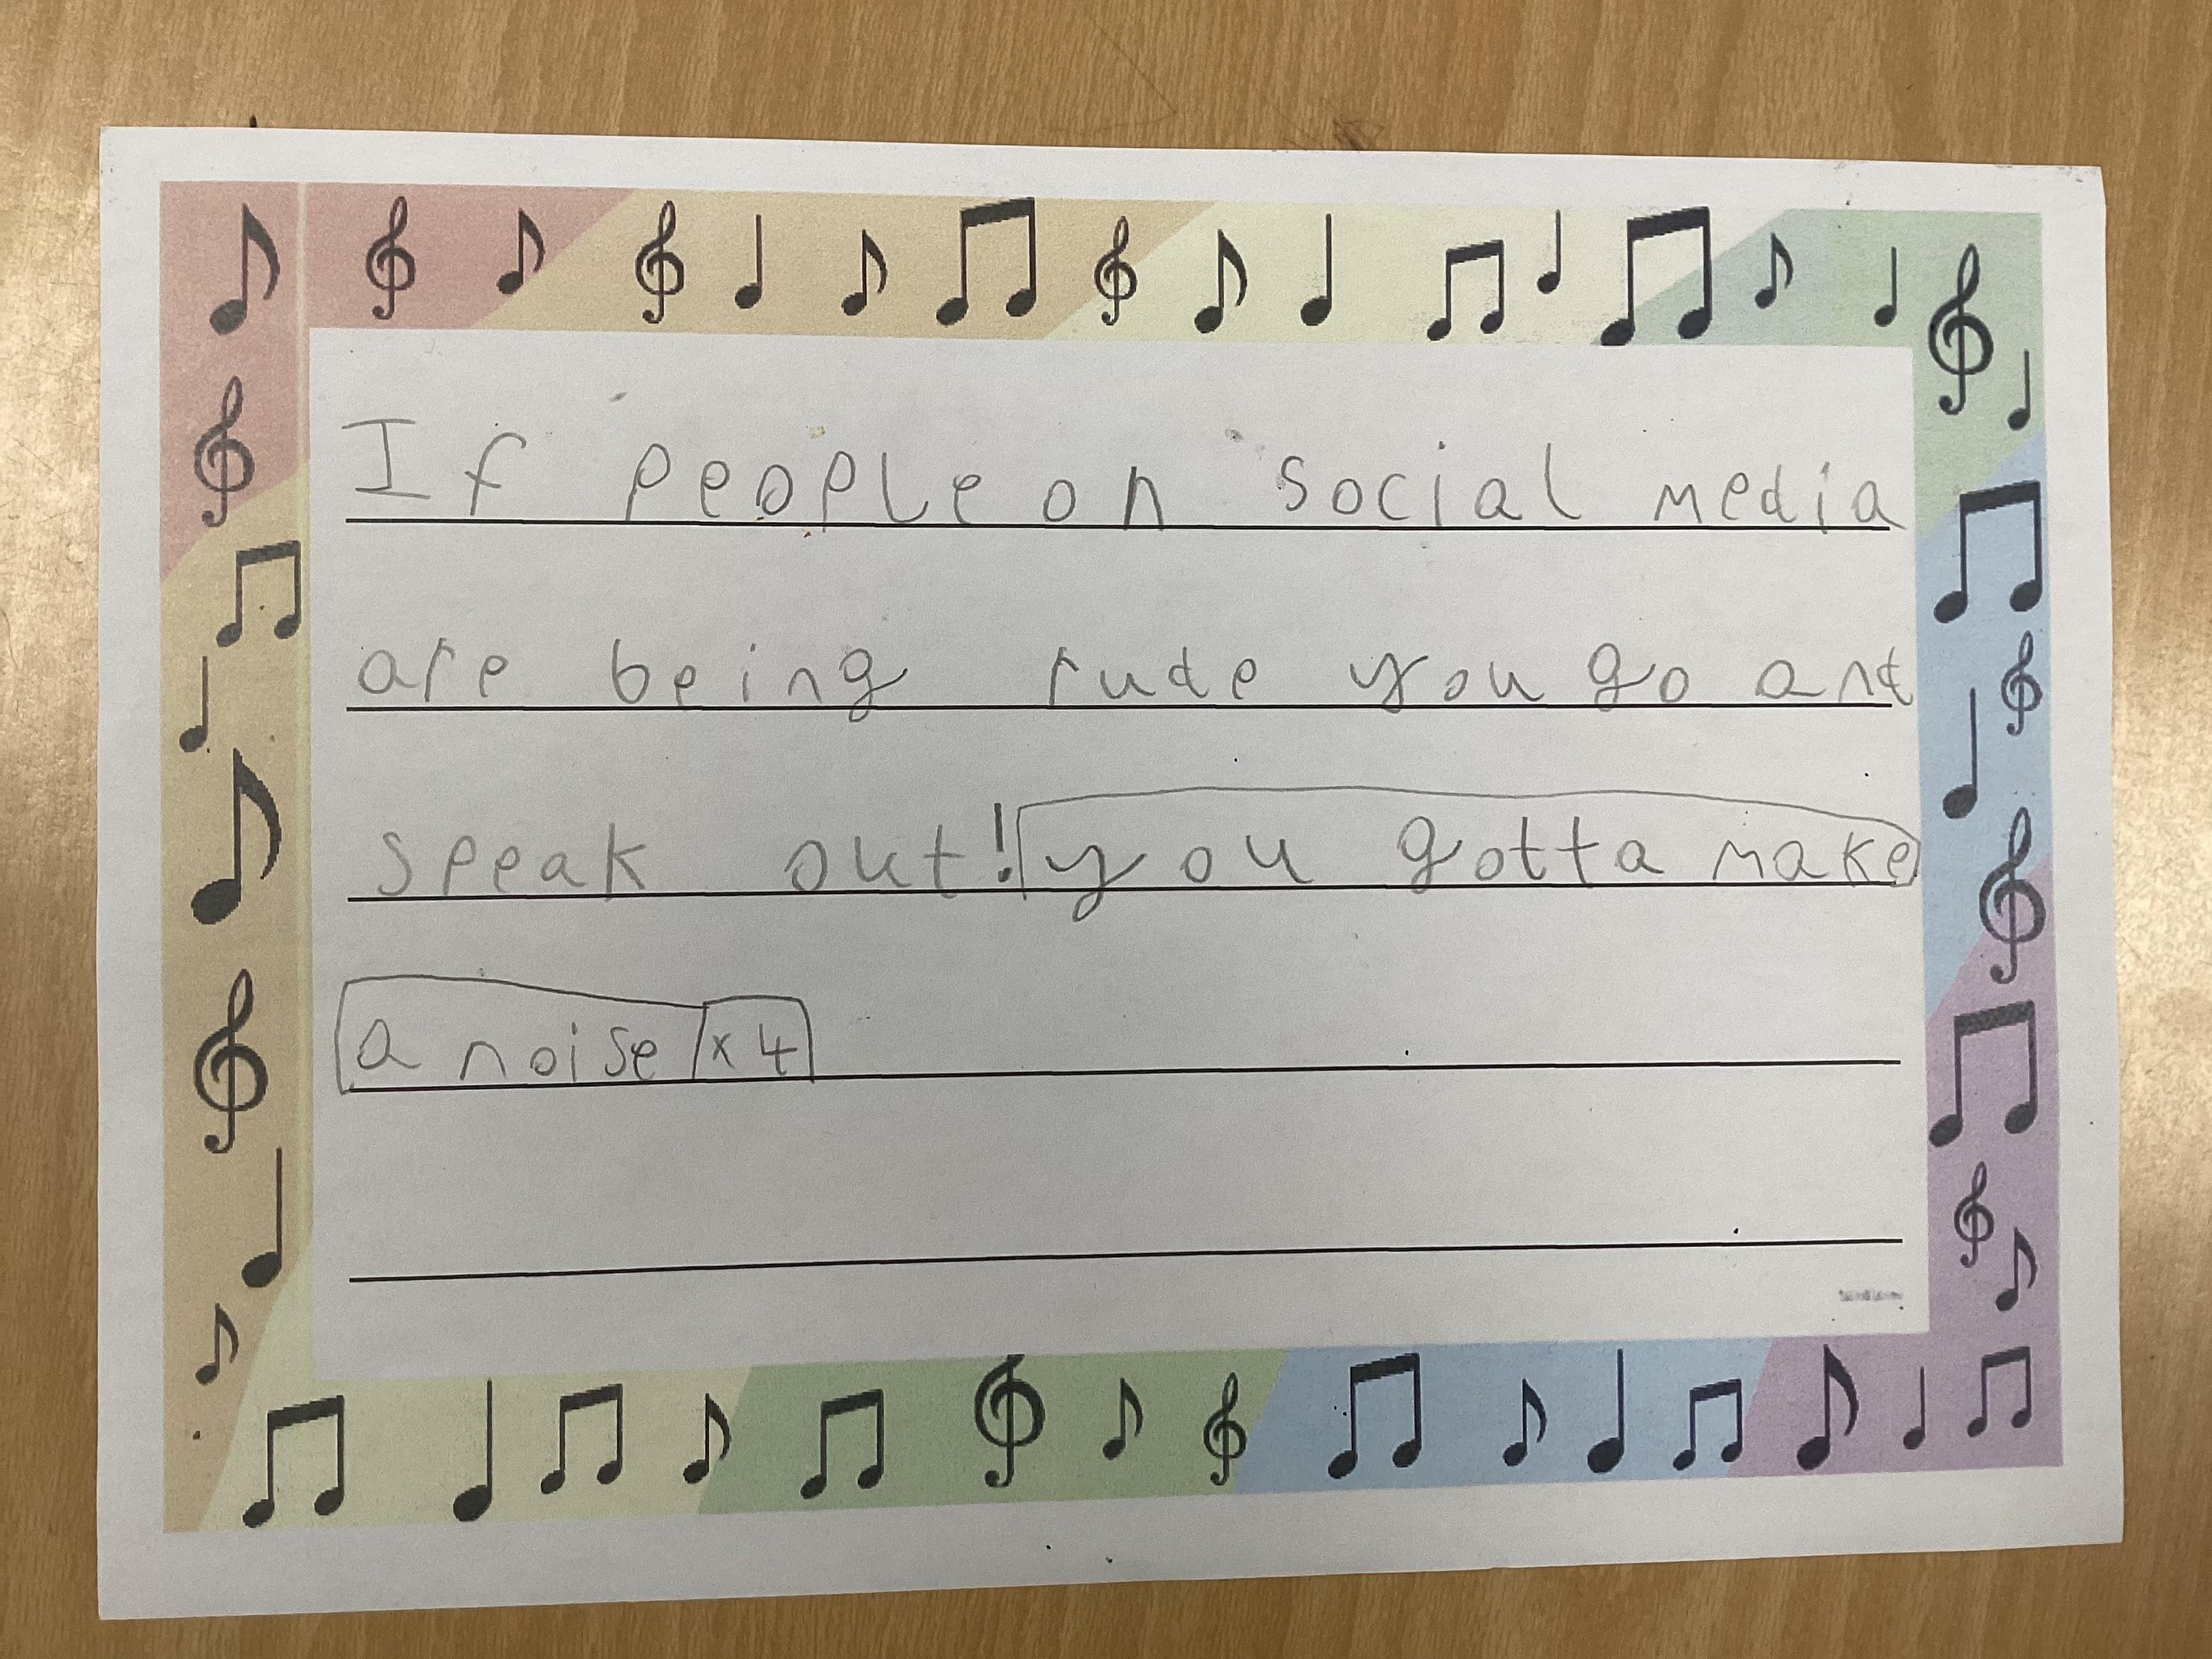 If people on social media
are being rude you go and
speak out! you gotta make
a noise x4